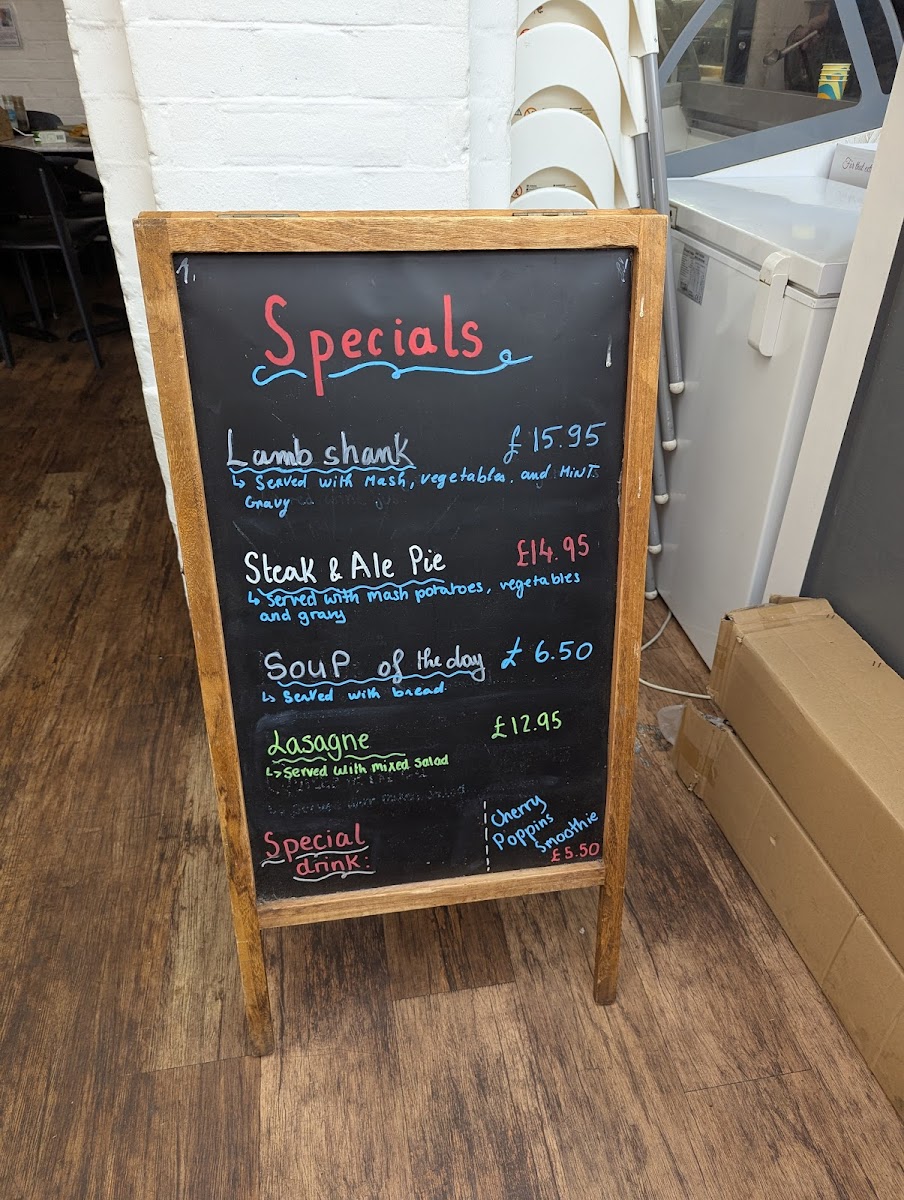 Specials
Lamb shank £15.95
↳ Served with Mash, vegetables. and MiNT
Gravy
Steak & Ale Pie £14.95
↳ Served with mash potatoes, vegetables
and gravy
Soup of the day £6.50
↳ Served with bread
Lasagne £12.95
↳ Served with mixed salad
Special
drink:
Cherry
Poppins
Smoothie
£5.50